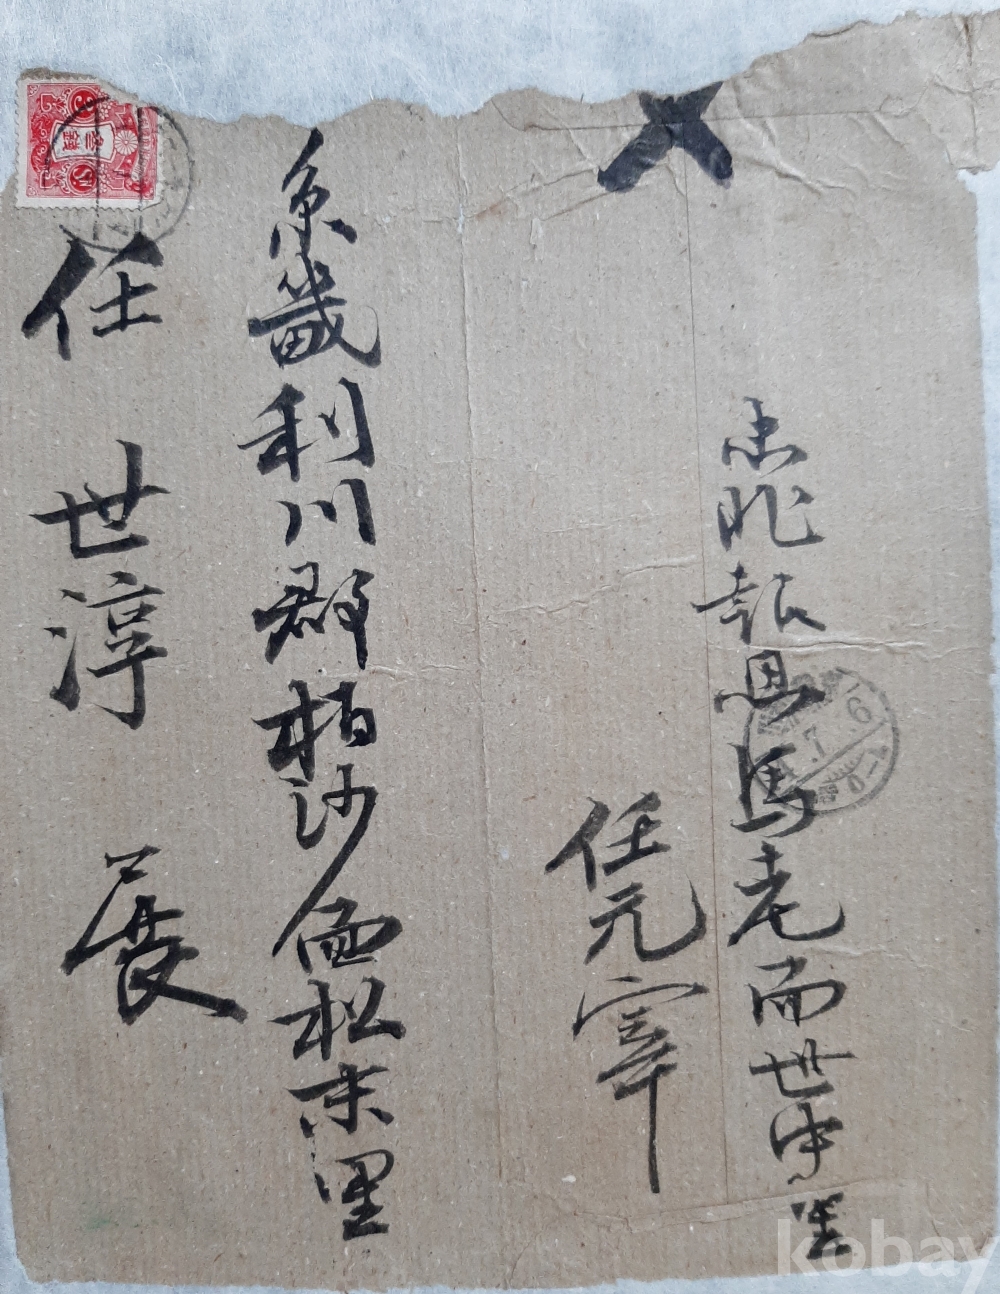 忠北報恩馬老面世中里
任元宰
京畿利川郡栢沙面松末里
任世淳展
kobay